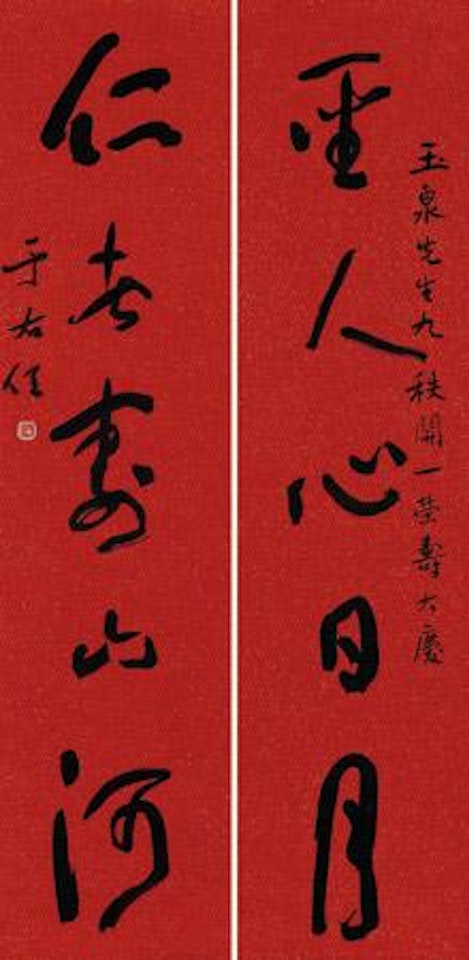 玉泉先生九秩開一榮壽大慶
聖人心日月
仁者壽山河
于右任